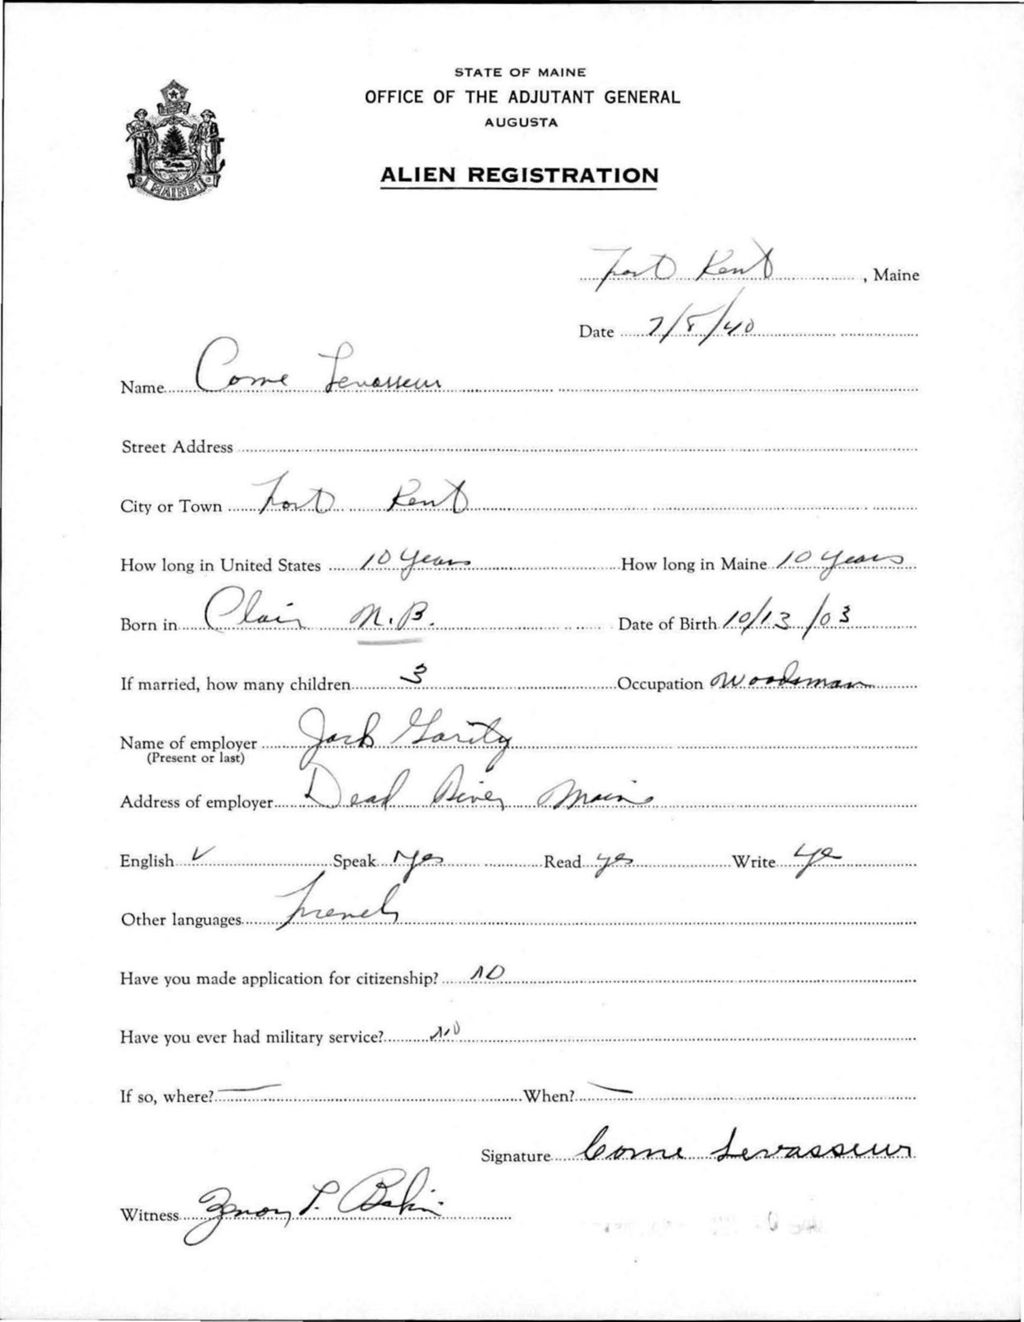 STATE OF MAINE
OFFICE OF THE ADJUTANT GENERAL
AUGUSTA
ALIEN REGISTRATION
MAINE
Fort Kent, Maine
Date 7/8/40
Name Come Levasseur
Street Address
City or Town Fort Kent
How long in United States 10 years How long in Maine 10 years
Born in Clair N.B. Date of Birth 10/13/03
If married, how many children 3 Occupation Woodsman
Name of employer Jack Garity
(Present or last)
Address of employer Dead River Maine
English ✓ Speak Yes Read yes Write ye
Other languages French
Have you made application for citizenship? NO
Have you ever had military service? NO
If so, where? — When? —
Signature Come Levasseur
Witness